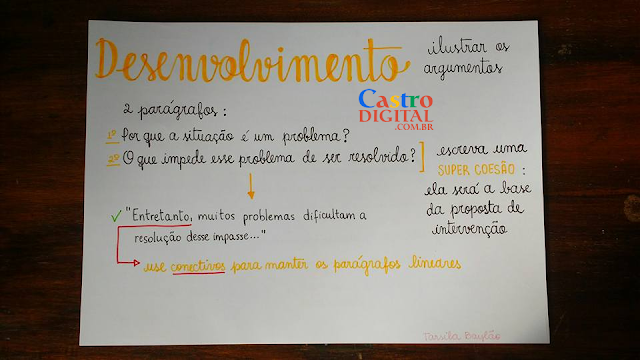 Desenvolvimento
ilustrar os
argumentos
Castro
DIGITAL
.COM.BR
2 parágrafos:
1º Por que a situação é um problema?
2º O que impede esse problema de ser resolvido?
escreva uma
SUPER COESÃO:
ela será a base
da proposta de
intervenção
✓ "Entretanto, muitos problemas dificultam a
resolução desse impasse..."
use conectivos para manter os parágrafos lineares